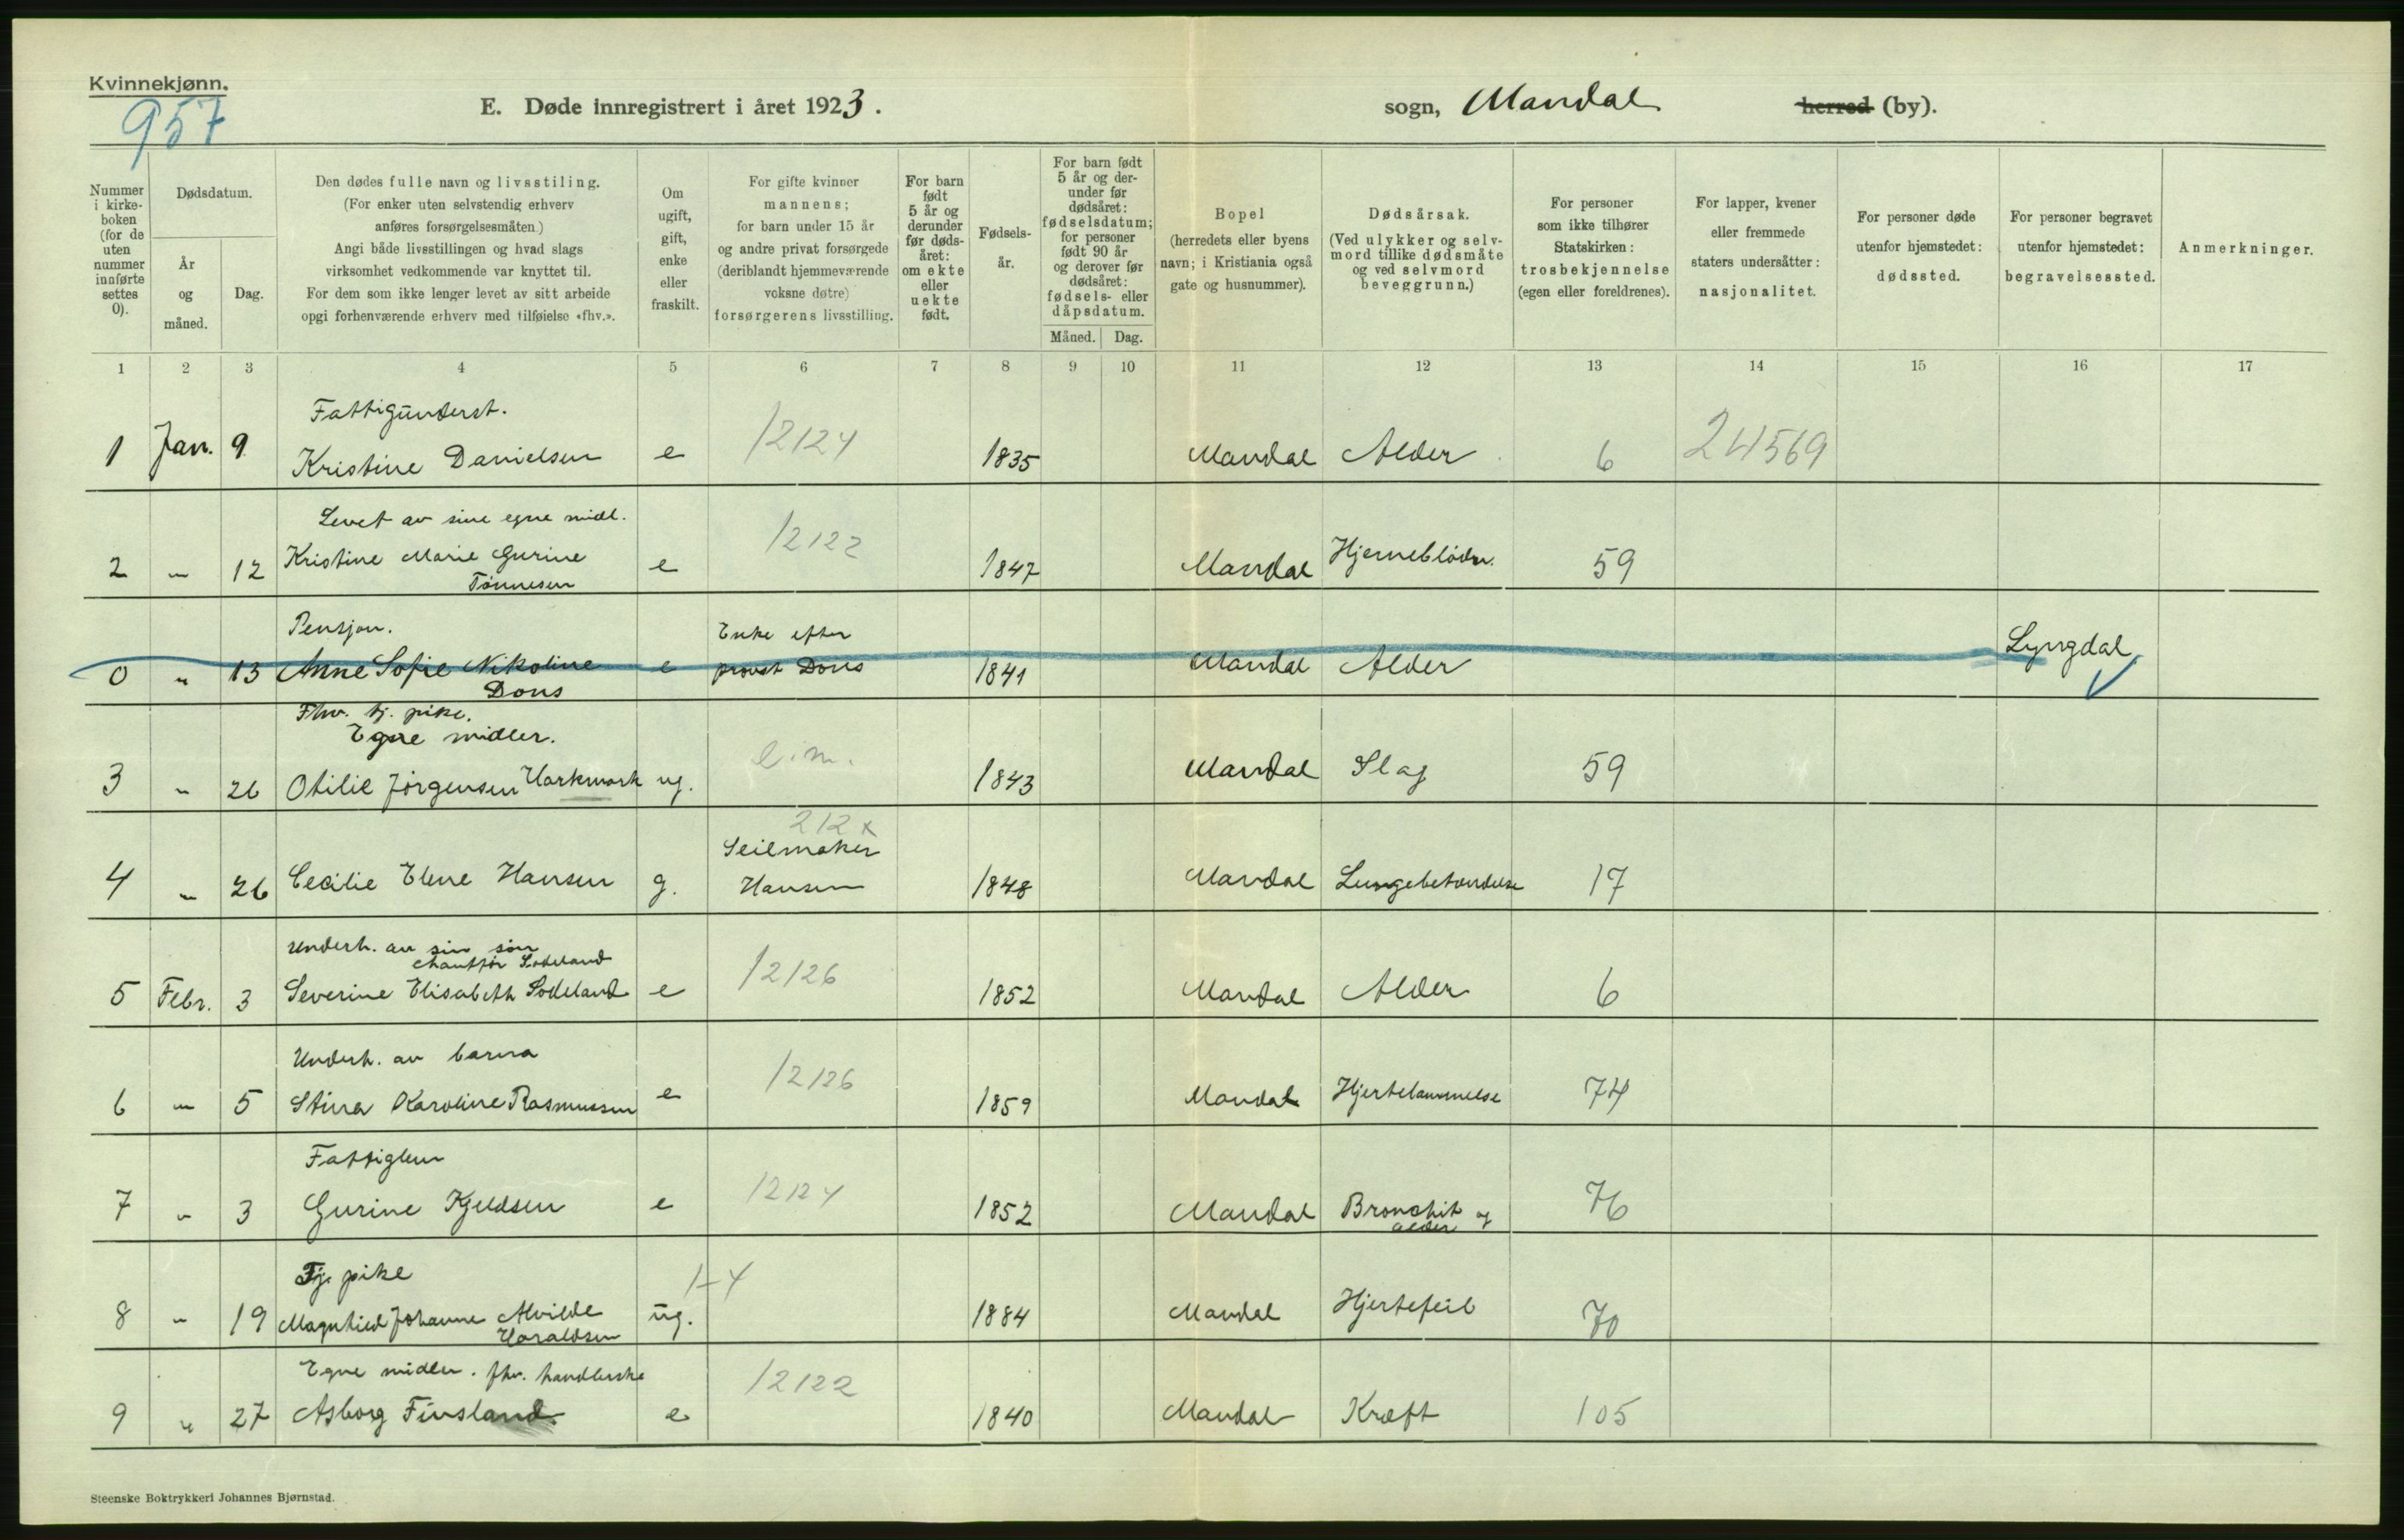 Kvinnekjønn.
957
E. Døde innregistrert i året 1923.
sogn, Mandal herred (by).
Nummer i kirke- boken (for de uten nummer innførte settes 0).
Dødsdatum.
År og måned.
Dag.
Den dødes fulle navn og livsstiling.
(For enker uten selvstendig erhverv
anføres forsørgelsesmåten.)
Angi både livsstillingen og hvad slags
virksomhet vedkommende var knyttet til.
For dem som ikke lenger levet av sitt arbeide
opgi forhenværende erhverv med tilføielse «fhv.».
Om ugift, gift, enke eller fraskilt.
For gifte kvinner
mannens;
for barn under 15 år
og andre privat forsørgede
(deriblandt hjemmeværende
voksne døtre)
forsørgerens livsstilling.
For barn født 5 år og derunder før døds- året: om ekte eller uekte født.
Fødsels- år.
For barn født 5 år og der- under før dødsåret: fødselsdatum; for personer født 90 år og derover før dødsåret: fødsels- eller dåpsdatum.
Måned. Dag.
Bopel
(herredets eller byens
navn; i Kristiania også
gate og husnummer).
Dødsårsak.
(Ved ulykker og selv-
mord tillike dødsmåte
og ved selvmord
beveggrunn.)
For personer
som ikke tilhører
Statskirken:
trosbekjennelse
(egen eller foreldrenes).
For lapper, kvener
eller fremmede
staters undersåtter:
nasjonalitet.
For personer døde
utenfor hjemstedet:
dødssted.
For personer begravet
utenfor hjemstedet:
begravelsessted.
Anmerkninger.
1 2 3 4 5 6 7 8 9 10 11 12 13 14 15 16 17
Fattigunderst.
1 Jan. 9 Kristine Danielsen e 12124 1835 Mandal Alder 6 24569
Levet av sine egne midl.
2 " 12 Kristine Marie Gurine e 12122 1847 Mandal Hjerneblødn. 59
Tönnesen
Pensjon. Enke efter
0 " 13 Anne Sofie Nikoline e provst Dons 1841 Mandal Alder Lyngdal
Dons
Fhv. tj. pike.
Egne midler.
3 " 26 Otilie Jörgensen Harkmark ug. e.m. 1843 Mandal Slag 59
212x
Seilmaker
4 " 26 Cecilie Elene Hansen g. Hansen 1848 Mandal Lungebetændelse 17
Underh. av sin sön
chauffør Sodeland
5 Febr. 3 Severine Elisabeth Sodeland e 12126 1852 Mandal Alder 6
Underh. av barna
6 " 5 Stina Karoline Rasmussen e 12126 1859 Mandal Hjertelammelse 74
Fattiglem
7 " 3 Gurine Kjeldsen e 12124 1852 Mandal Bronchit og 76
alder
Tj. pike 1-4
8 " 19 Magnhild Johanne Alvilde ug. 1884 Mandal Hjertefeil 70
Haraldsen
Egne midler. fhv. handlerske
9 " 27 Asborg Finsland e 12122 1840 Mandal Kræft 105
Steenske Boktrykkeri Johannes Bjørnstad.